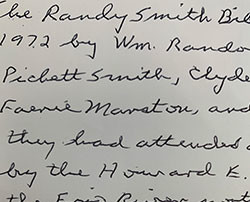 the Randy Smith Bi
1972 by Wm. Rando
Pickett Smith, Clyde
Faerie Marston, and
they had attended a
by the Howard E.
the